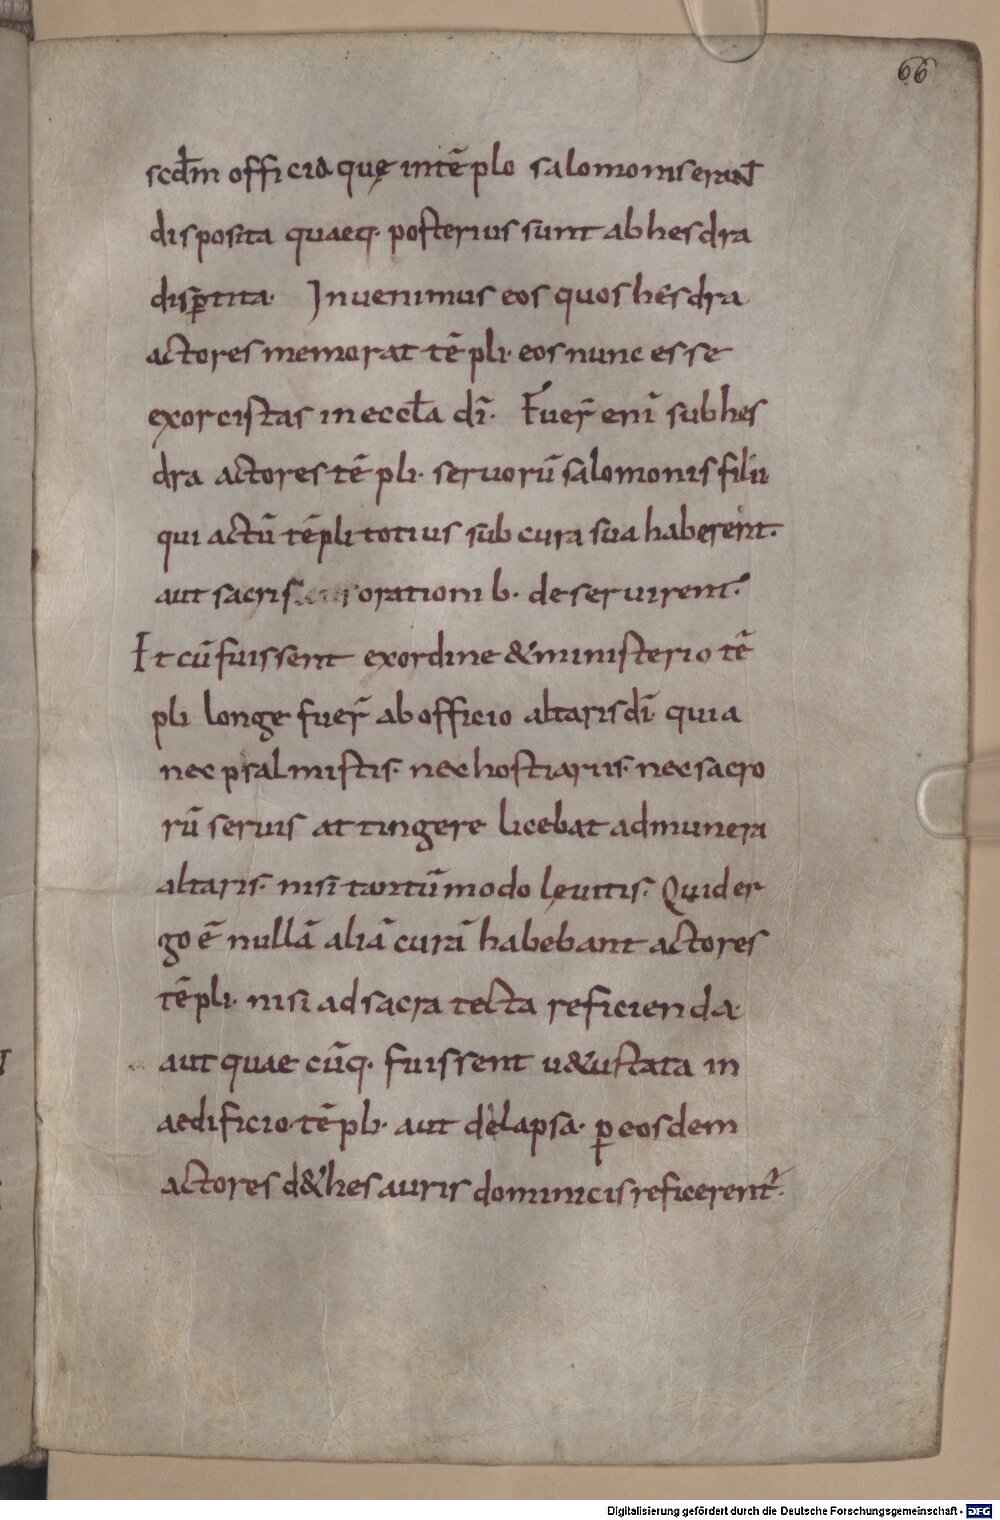 66
scđm officia quę intẽplo salomonis erant̃
disposita quaeq· posterius sunt ab hesdra
disꝑtita· Inuenimus eos quos hesdra
actores memorat tẽpli· eos nunc esse
exorcistas in eccƚa dī· Fuer̃ enī sub hes
dra actores tẽpli· seruorū salomonis filii
qui actū tẽpli totius sub cura sua haberent·
aut sacris orationib· deseruirent·
Et cū fuissent ex ordine & ministerio tẽ
pli longe fuer̃ ab officio altaris dī quia
nec psalmistis· nec hostiariis· nec sacro
rū seruis attingere licebat ad munera
altaris· nisi tantūmodo leuitis· Quid er
go ē nullā aliā curā habebant actores
tẽpli· nisi ad sacra tecta reficienda·
aut quaecūq· fuissent u&ustata in
aedificio tẽpli· aut delapsa· ꝑ eosdem
actores d&hesauris dominicis reficerent᷑·
Digitalisierung gefördert durch die Deutsche Forschungsgemeinschaft - DFG